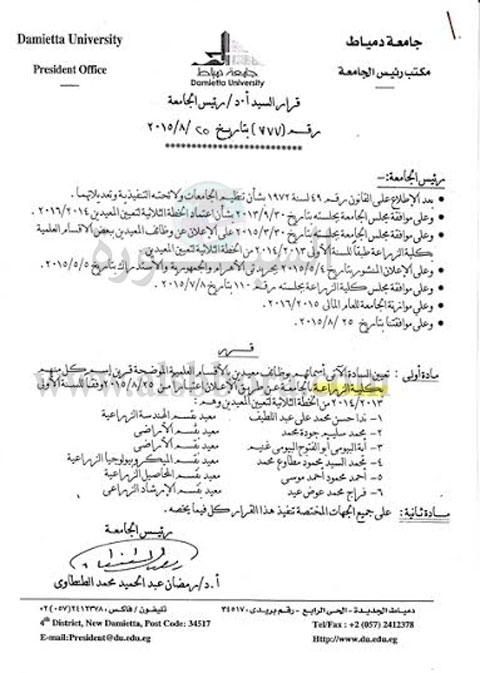 Damietta University
جامعة دمياط
President Office
مكتب رئيس الجامعة
جامعة دمياط
Damietta University
قرار السيد أ.د/ رئيس الجامعة
رقم (٧٧٧) بتاريخ ٢٥ /٢٠١٥/٨
رئيس الجامعة:-
بعد الإطلاع على القانون رقم ٤٩ لسنة ١٩٧٢ بشأن تنظيم الجامعات ولائحته التنفيذية وتعديلاتهما .
وعلى موافقة مجلس الجامعة بجلسته بتاريخ ٢٠١٣/٩/٣٠ بشأن اعتماد الخطة الثلاثية لتعيين المعيدين ٢٠١٦/٢٠١٤ .
وعلى موافقة مجلس الجامعة بجلسته بتاريخ ٢٠١٥/٣/٣٠ على الإعلان عن وظائف المعيدين ببعض الأقسام العلمية
بكلية الزراعة طبقاً للسنة الأولى ٢٠١٤/٢٠١٣ من الخطة الثلاثية لتعيين المعيدين
وعلى الإعلان المنشور بتاريخ ٢٠١٥/٥/٤ بجريدتى الأهرام والجمهورية والاستدراك بتاريخ ٢٠١٥/٥/٥ .
وعلى موافقة مجلس كلية الزراعة بجلسته رقم ١١٠ بتاريخ ٢٠١٥/٧/٨ .
وعلى موازنة الجامعة للعام المالى ٢٠١٦/٢٠١٥ .
وعلى موافقتنا بتاريخ ٢٥ /٢٠١٥/٨ .
قـــرر
مادة أولى : تعيين السادة الآتى أسمائهم بوظائف معيدين بالأقسام العلمية الموضحة قرين اسم كل منهم
بكلية الزراعة بالجامعة عن طريق الإعلان اعتباراً من ٢٠١٥/٨/٢٥ وفقا للسنة الأولى
٢٠١٤/٢٠١٣ من الخطة الثلاثية لتعيين المعيدين وهم:
١- ندا حسن محمد على عبد اللطيف معيد بقسم الهندسة الزراعية
٢- محمد سليم جودة محمد معيد بقسم الأراضى
٣- آية البيومى أبو الفتوح البيومى غنيم معيد بقسم الأراضى
٤- محمد السيد محمود مطاوع محمد معيد بقسم الميكروبيولوجيا الزراعية
٥- أحمد محمود أحمد موسى معيد بقسم المحاصيل الزراعية
٦- فراج محمد عوض عيد معيد بقسم الإرشاد الزراعى
مادة ثانية : على جميع الجهات المختصة تنفيذ هذا القرار كل فيما يخصه .
رئيس الجامعة
أ.د/ رمضان عبد الحميد محمد الطنطاوى
دمياط الجديدة - الحى الرابع - رقم بريدى ٣٤٥١٧
تليفون / فاكس : ٢٤١٢٣٧٨ (٠٥٧) ٠٢
4th District, New Damietta, Post Code: 34517
Tel/Fax : +2 (057) 2412378
E-mail:President@du.edu.eg
Http://www.du.edu.eg